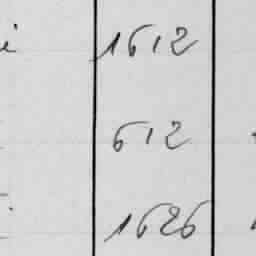 i 1612
612
1626